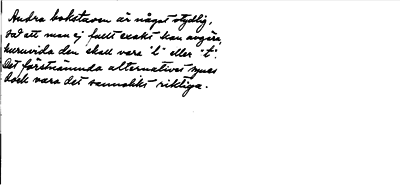 Andra bokstaven är något otydlig,
så att man ej fullt exakt kan avgöra
huruvida den skall vara "l" eller "t".
Det förstnämnda alternativet synes
dock vara det sannolikt riktiga.